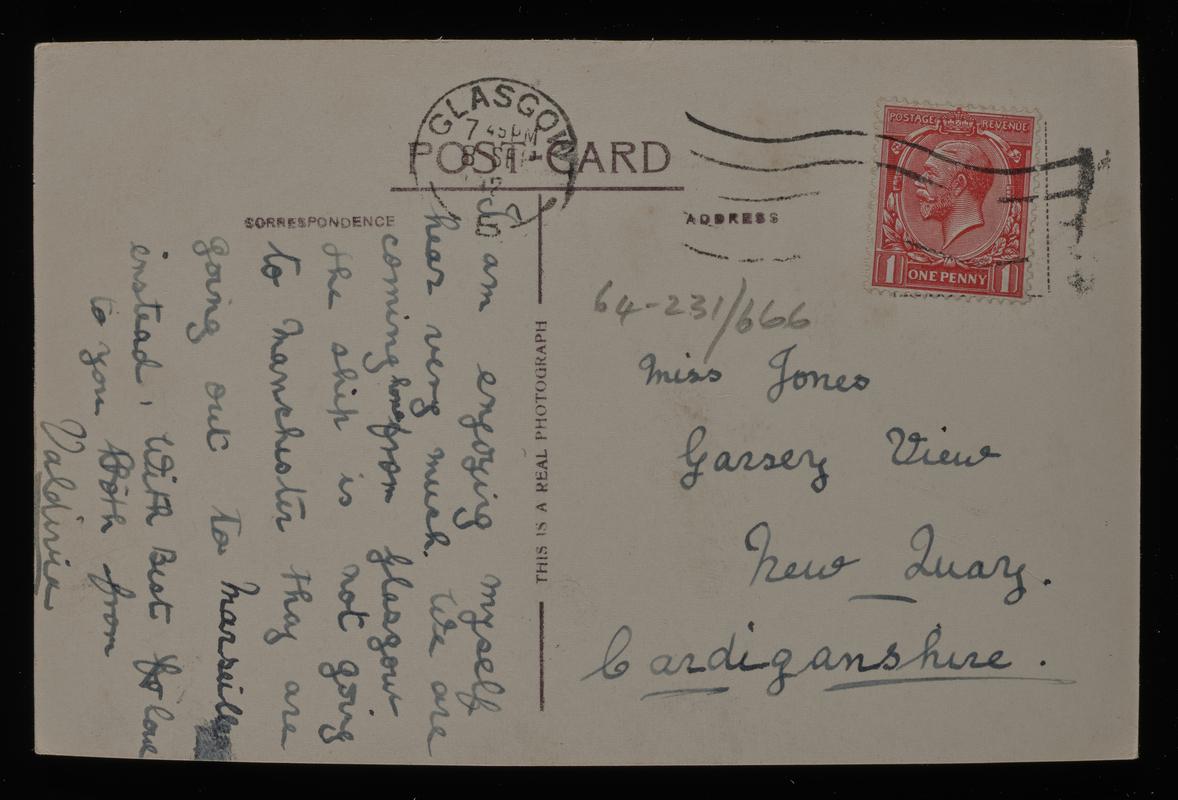 GLASGOW
7 45 PM
8 SEP
POST CARD
CORRESPONDENCE
ADDRESS
POSTAGE REVENUE
1 ONE PENNY 1
64-231/666
THIS IS A REAL PHOTOGRAPH
I am enjoying myself
hear very much. We are
coming home from Glasgow
the ship is not going
to Manchester thay are
going out to Marseille
instead, With Best love
to you Both from
Valdivia
Miss Jones
Garsey View
New Quay.
Cardiganshire.